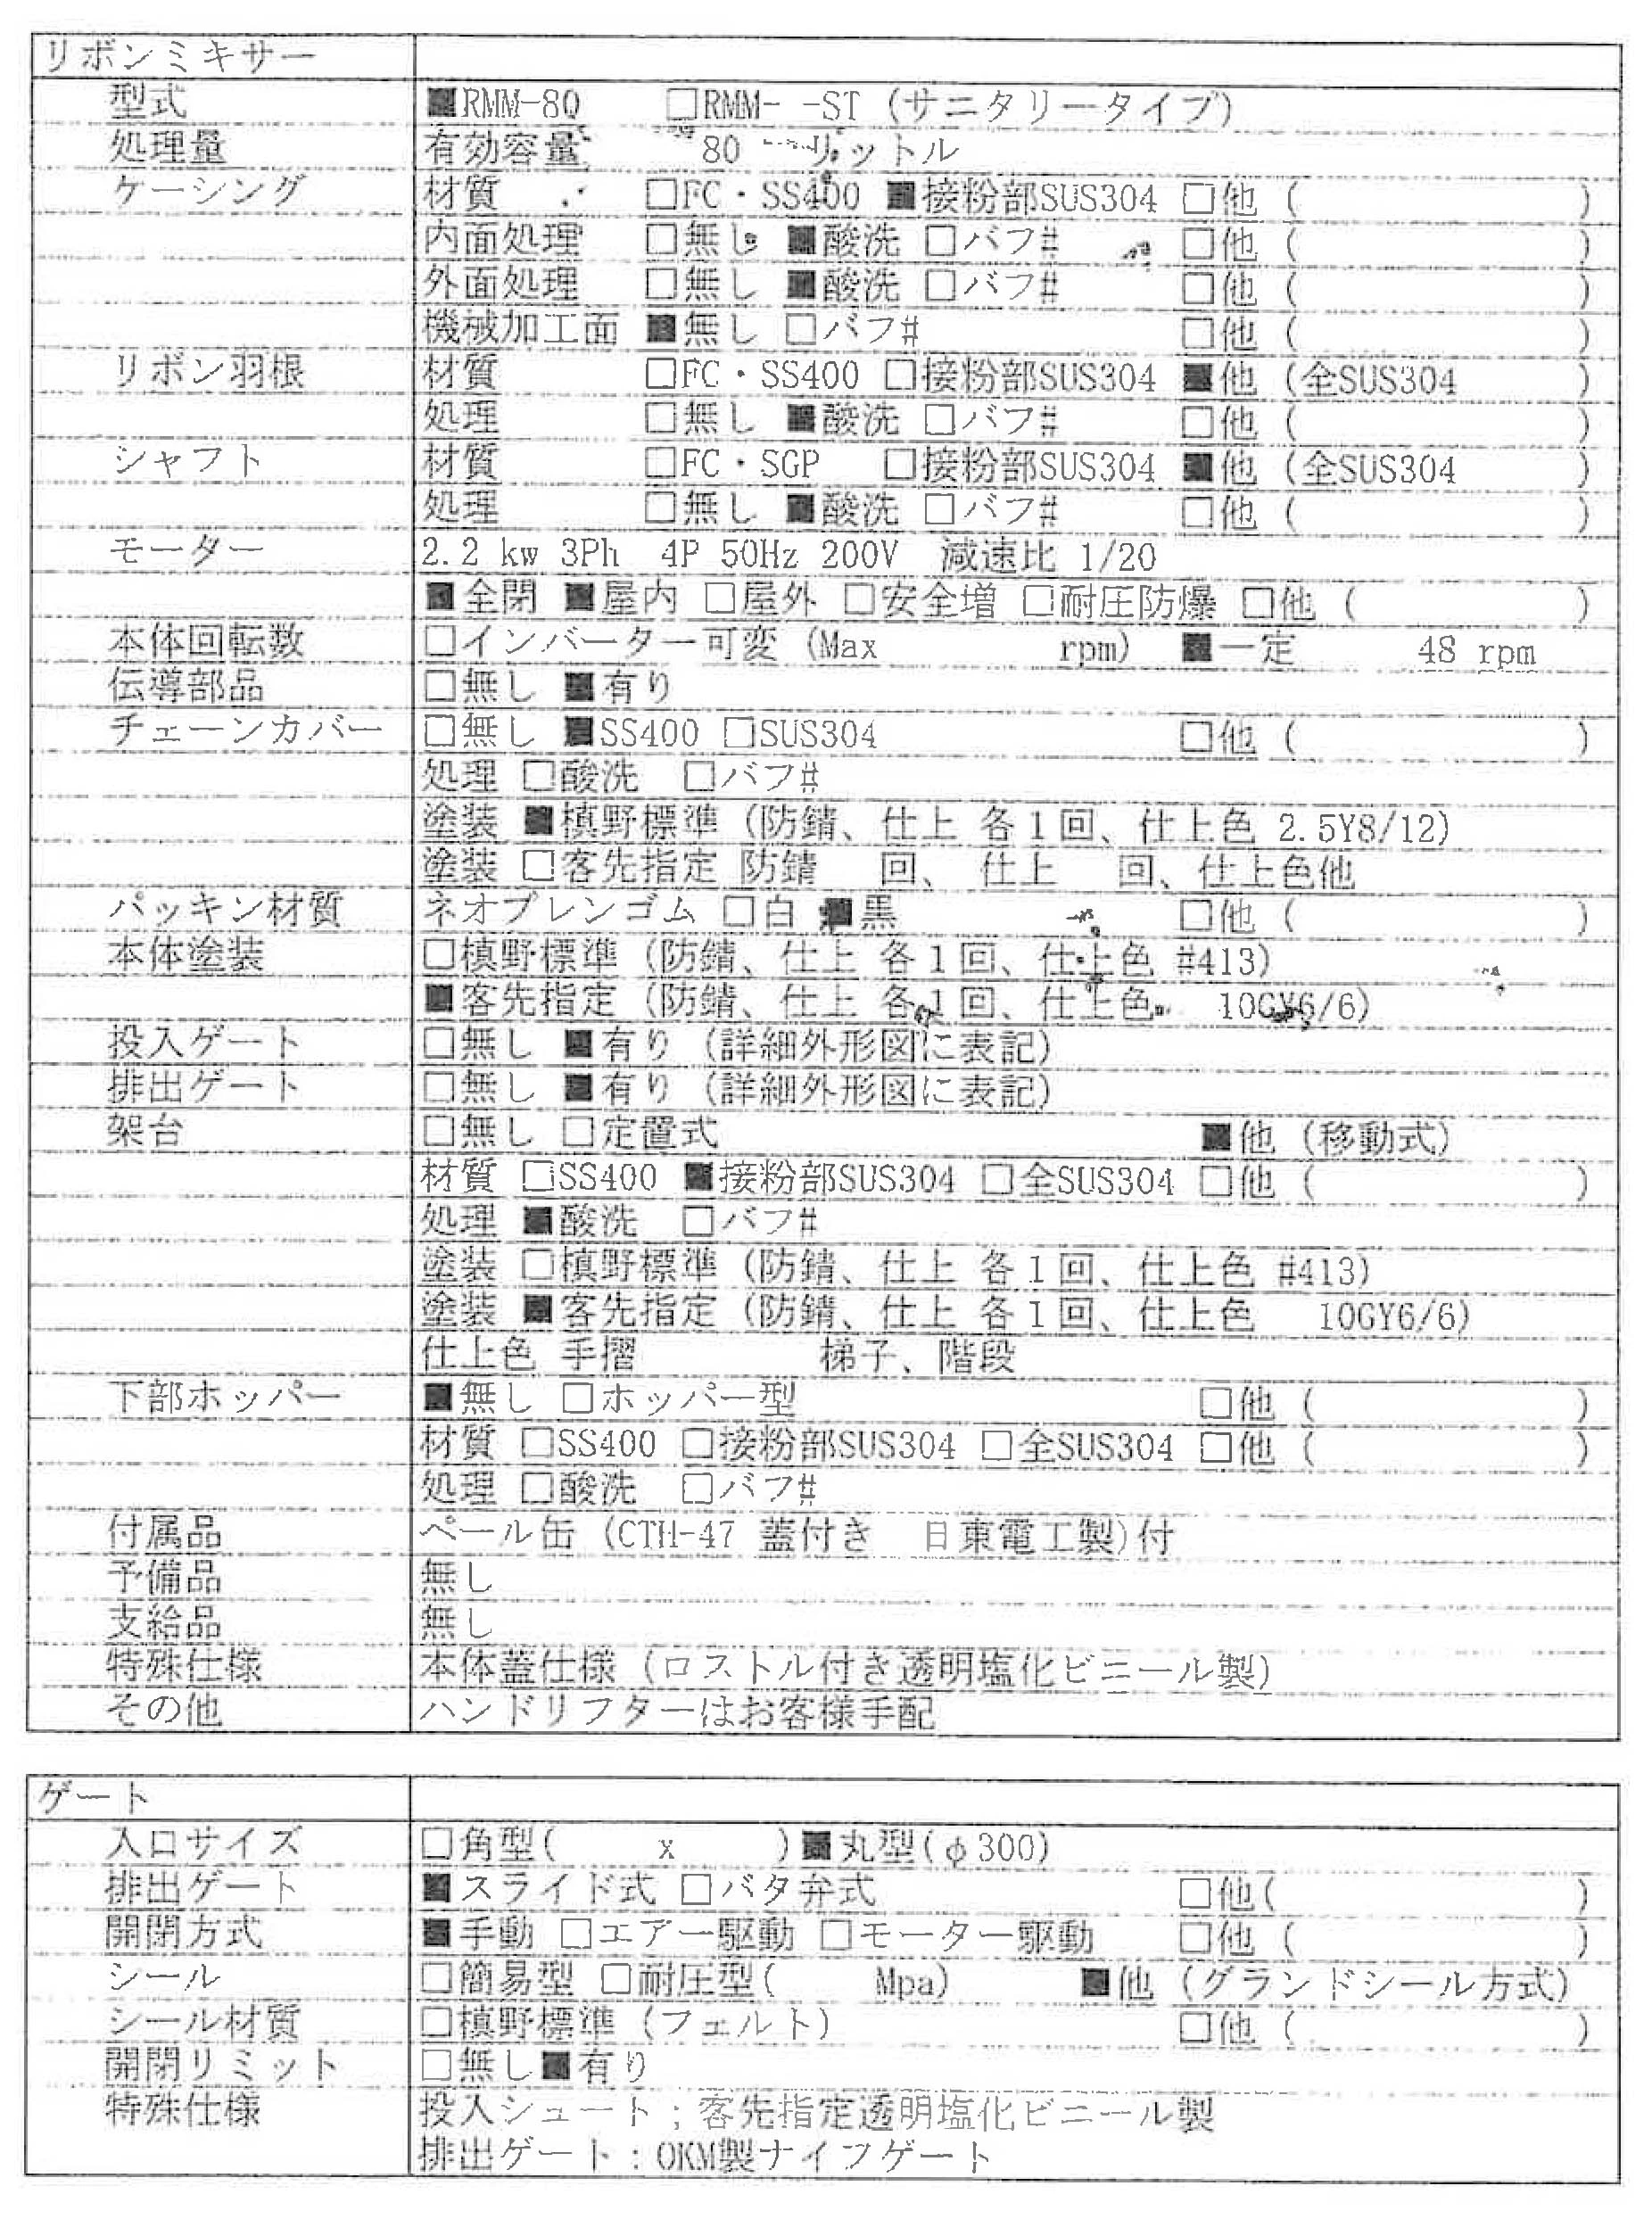 リボンミキサー
型式 ■RMM-80 □RMM- -ST (サニタリータイプ)
処理量 有効容量 80 リットル
ケーシング 材質 □FC・SS400 ■接粉部SUS304 □他 ( )
内面処理 □無し ■酸洗 □バフ# □他 ( )
外面処理 □無し ■酸洗 □バフ# □他 ( )
機械加工面 ■無し □バフ# □他 ( )
リボン羽根 材質 □FC・SS400 □接粉部SUS304 ■他 (全SUS304 )
処理 □無し ■酸洗 □バフ# □他 ( )
シャフト 材質 □FC・SGP □接粉部SUS304 ■他 (全SUS304 )
処理 □無し ■酸洗 □バフ# □他 ( )
モーター 2.2 kw 3Ph 4P 50Hz 200V 減速比 1/20
■全閉 ■屋内 □屋外 □安全増 □耐圧防爆 □他 ( )
本体回転数 □インバーター可変 (Max rpm) ■一定 48 rpm
伝導部品 □無し ■有り
チェーンカバー □無し ■SS400 □SUS304 □他 ( )
処理 □酸洗 □バフ#
塗装 ■槙野標準 (防錆、仕上 各1回、仕上色 2.5Y8/12)
塗装 □客先指定 防錆 回、 仕上 回、仕上色他
パッキン材質 ネオプレンゴム □白 ■黒 □他 ( )
本体塗装 □槙野標準 (防錆、仕上 各1回、仕上色 #413)
■客先指定 (防錆、仕上 各1回、仕上色 10GY6/6)
投入ゲート □無し ■有り (詳細外形図に表記)
排出ゲート □無し ■有り (詳細外形図に表記)
架台 □無し □定置式 ■他 (移動式)
材質 □SS400 ■接粉部SUS304 □全SUS304 □他 ( )
処理 ■酸洗 □バフ#
塗装 □槙野標準 (防錆、仕上 各1回、仕上色 #413)
塗装 ■客先指定 (防錆、仕上 各1回、仕上色 10GY6/6)
仕上色 手摺 梯子、階段
下部ホッパー ■無し □ホッパー型 □他 ( )
材質 □SS400 □接粉部SUS304 □全SUS304 □他 ( )
処理 □酸洗 □バフ#
付属品 ペール缶 (CTH-47 蓋付き 日東電工製)付
予備品 無し
支給品 無し
特殊仕様 本体蓋仕様 (ロストル付き透明塩化ビニール製)
その他 ハンドリフターはお客様手配
ゲート
入口サイズ □角型( x )■丸型(φ300)
排出ゲート ■スライド式 □バタ弁式 □他( )
開閉方式 ■手動 □エアー駆動 □モーター駆動 □他 ( )
シール □簡易型 □耐圧型( Mpa) ■他 (グランドシール方式)
シール材質 □槙野標準 (フェルト) □他 ( )
開閉リミット □無し■有り
特殊仕様 投入シュート；客先指定透明塩化ビニール製
排出ゲート：OKM製ナイフゲート